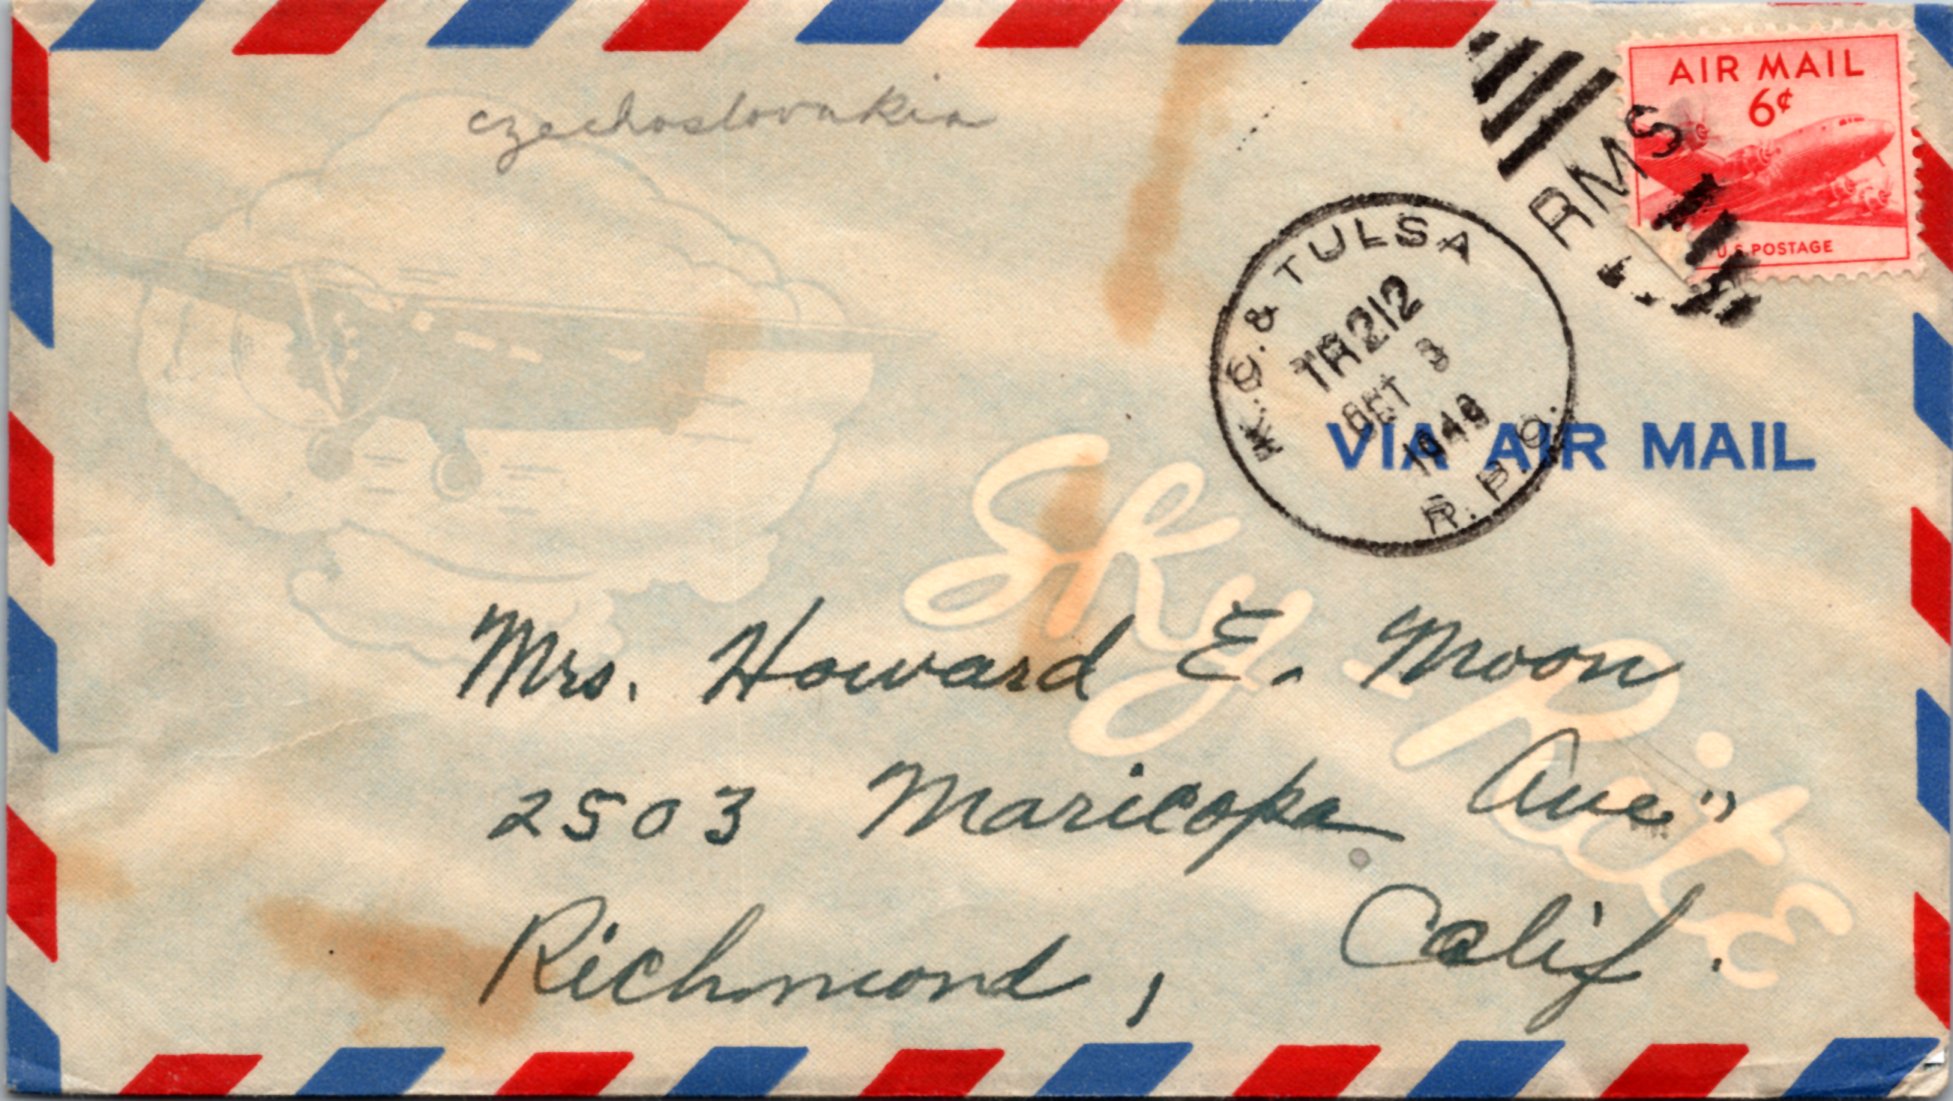 czechoslovakia
AIR MAIL
6¢
U.S. POSTAGE
RMS
K.C. & TULSA
TR 212
OCT 3
1949
R.P.O.
VIA AIR MAIL
Sky-Rite
Mrs. Howard E. Moon
2503 Maricopa Ave"
Richmond, Calif.